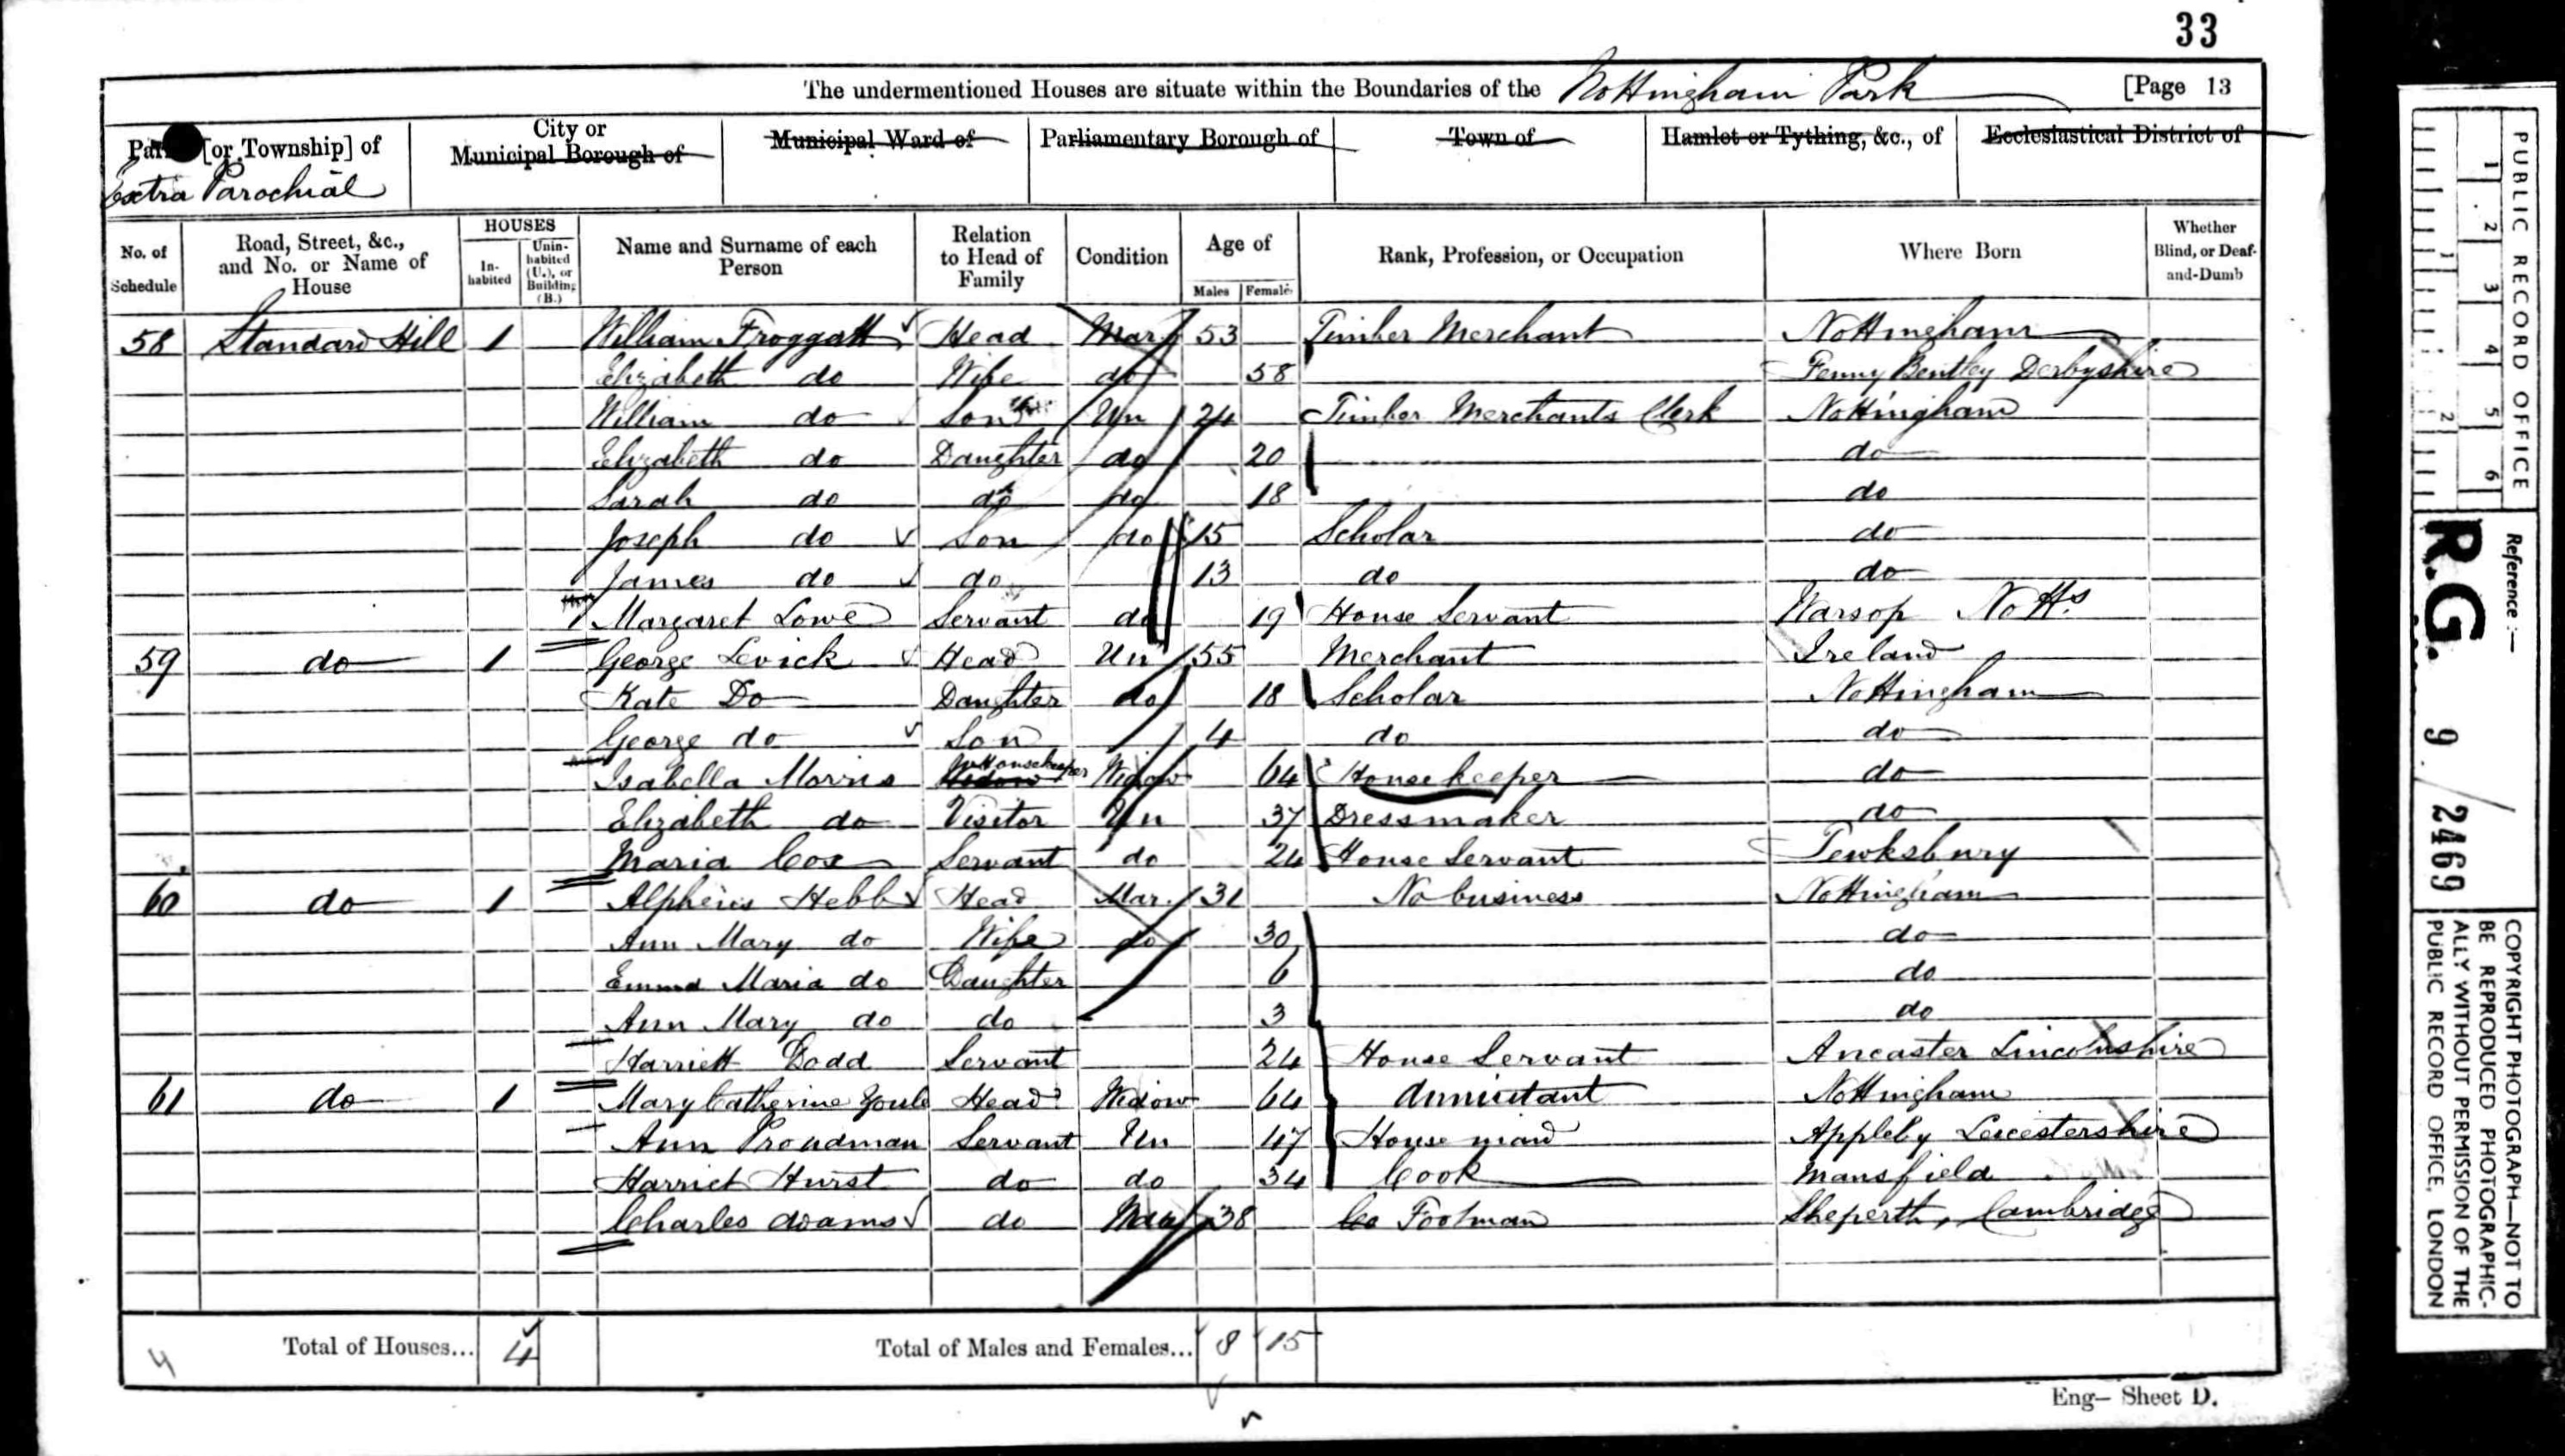 33
The undermentioned Houses are situate within the Boundaries of the Nottingham Park [Page 13
[or Township] of
Extra Parochial
City or Municipal Borough of
Municipal Ward of
Parliamentary Borough of
Town of
Hamlet or Tything, &c., of
Ecclesiastical District of
No. of Schedule
Road, Street, &c., and No. or Name of House
HOUSES
In-habited
Unin-habited (U.), or Building (B.)
Name and Surname of each Person
Relation to Head of Family
Condition
Age of
Males Females
Rank, Profession, or Occupation
Where Born
Whether Blind, or Deaf-and-Dumb
58 Standard Hill 1 William Froggatt Head Mar 53 Timber Merchant Nottingham
Elizabeth do Wife do 58 Fenny Bentley Derbyshire
William do Son Un 24 Timber Merchants Clerk Nottingham
Elizabeth do Daughter do 20 do
Sarah do do do 18 do
Joseph do Son do 15 Scholar do
James do do 13 do do
Margaret Lowe Servant do 19 House Servant Warsop Notts
59 do 1 George Levick Head Un 55 Merchant Ireland
Kate Do Daughter do 18 Scholar Nottingham
George do Son 4 do do
Isabella Morris Housekeeper Widow 64 Housekeeper do
Elizabeth do Visitor Un 37 Dressmaker do
Maria Cox Servant do 24 House Servant Tewksbury
60 do 1 Alpheus Hebb Head Mar. 31 No business Nottingham
Ann Mary do Wife do 30 do
Emma Maria do Daughter 6 do
Ann Mary do do 3 do
Harriett Dodd Servant 24 House Servant Ancaster Lincolnshire
61 do 1 Mary Catherine Youle Head Widow 64 Annuitant Nottingham
Ann Proudman Servant Un 47 House maid Appleby Leicestershire
Harriet Hurst do do 34 Cook Mansfield
Charles Adams do Mar 38 Footman Sheperth, Cambridge
4 Total of Houses... 4 Total of Males and Females... 8 15
Eng- Sheet D.
PUBLIC RECORD OFFICE
1 2 3 4 5 6
1 2
Reference :-
R.G. 9 / 2469
COPYRIGHT PHOTOGRAPH—NOT TO
BE REPRODUCED PHOTOGRAPHIC-
ALLY WITHOUT PERMISSION OF THE
PUBLIC RECORD OFFICE, LONDON